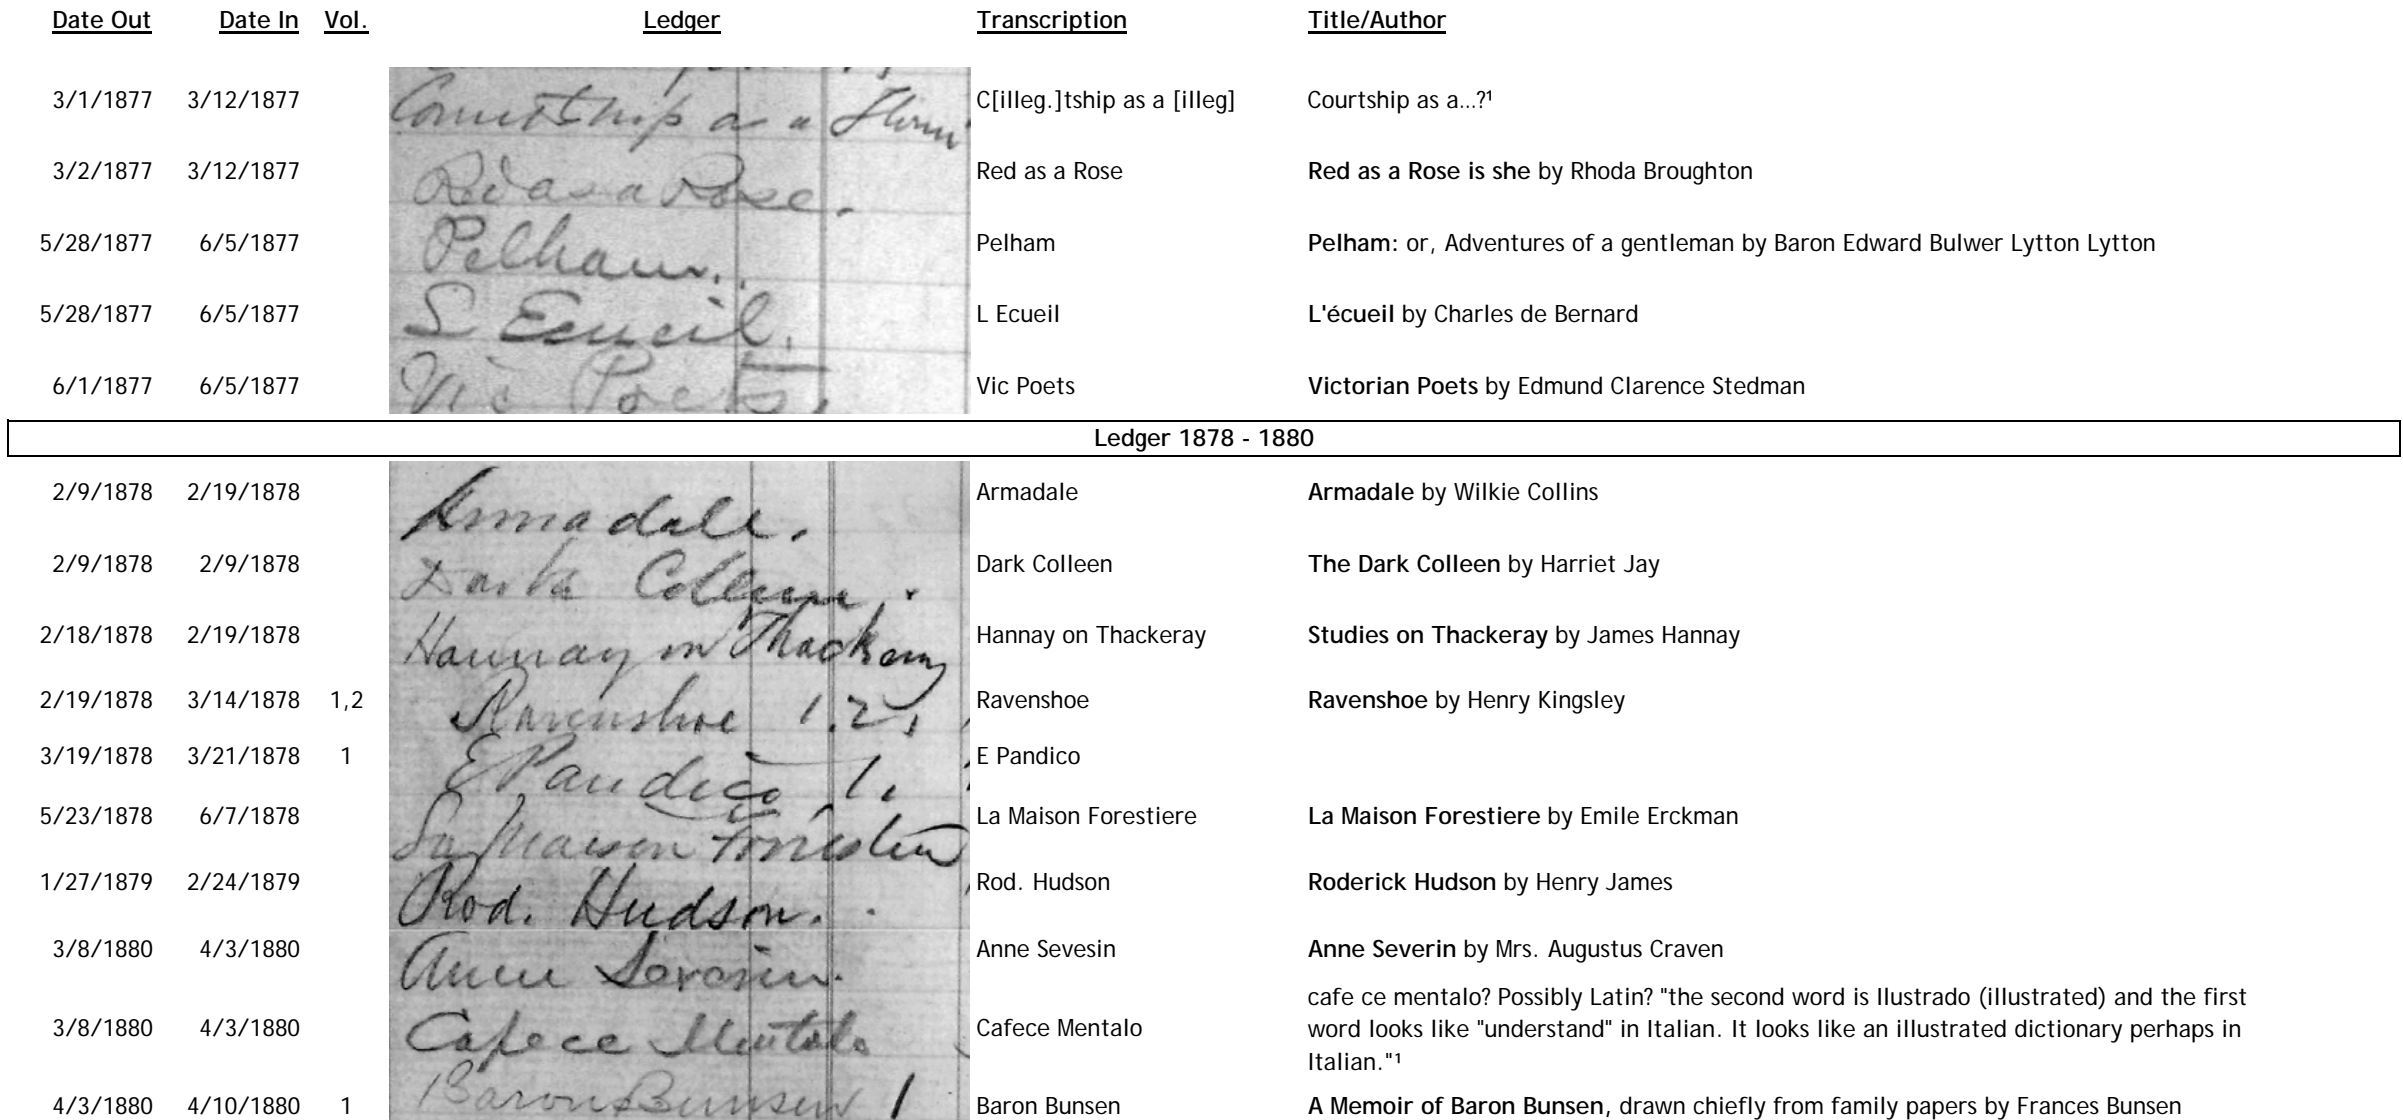 Date Out Date In Vol. Ledger Transcription Title/Author
3/1/1877 3/12/1877 Courtship as a C[illeg.]tship as a [illeg] Courtship as a...?¹
3/2/1877 3/12/1877 Red as a Rose. Red as a Rose Red as a Rose is she by Rhoda Broughton
5/28/1877 6/5/1877 Pelham. Pelham Pelham: or, Adventures of a gentleman by Baron Edward Bulwer Lytton Lytton
5/28/1877 6/5/1877 L Ecueil. L Ecueil L'écueil by Charles de Bernard
6/1/1877 6/5/1877 Vic Poets, Vic Poets Victorian Poets by Edmund Clarence Stedman
Ledger 1878 - 1880
2/9/1878 2/19/1878 Armadale. Armadale Armadale by Wilkie Collins
2/9/1878 2/9/1878 Dark Colleen. Dark Colleen The Dark Colleen by Harriet Jay
2/18/1878 2/19/1878 Hannay on Thackeray Hannay on Thackeray Studies on Thackeray by James Hannay
2/19/1878 3/14/1878 1,2 Ravenshoe 1.2. Ravenshoe Ravenshoe by Henry Kingsley
3/19/1878 3/21/1878 1 E Pandico 1. E Pandico
5/23/1878 6/7/1878 La Maison Forrestiere La Maison Forestiere La Maison Forestiere by Emile Erckman
1/27/1879 2/24/1879 Rod. Hudson. Rod. Hudson Roderick Hudson by Henry James
3/8/1880 4/3/1880 Anne Severin. Anne Sevesin Anne Severin by Mrs. Augustus Craven
cafe ce mentalo? Possibly Latin? "the second word is Ilustrado (illustrated) and the first
3/8/1880 4/3/1880 Cafece Mentalo Cafece Mentalo word looks like "understand" in Italian. It looks like an illustrated dictionary perhaps in
Italian."¹
4/3/1880 4/10/1880 1 Baron Bunsen 1 Baron Bunsen A Memoir of Baron Bunsen, drawn chiefly from family papers by Frances Bunsen